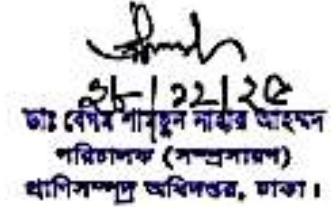 ২৮/১২/২৫
ডাঃ বেগম শামছুন নাহার আহম্মদ
পরিচালক (সম্প্রসারণ)
প্রাণিসম্পদ অধিদপ্তর, ঢাকা।